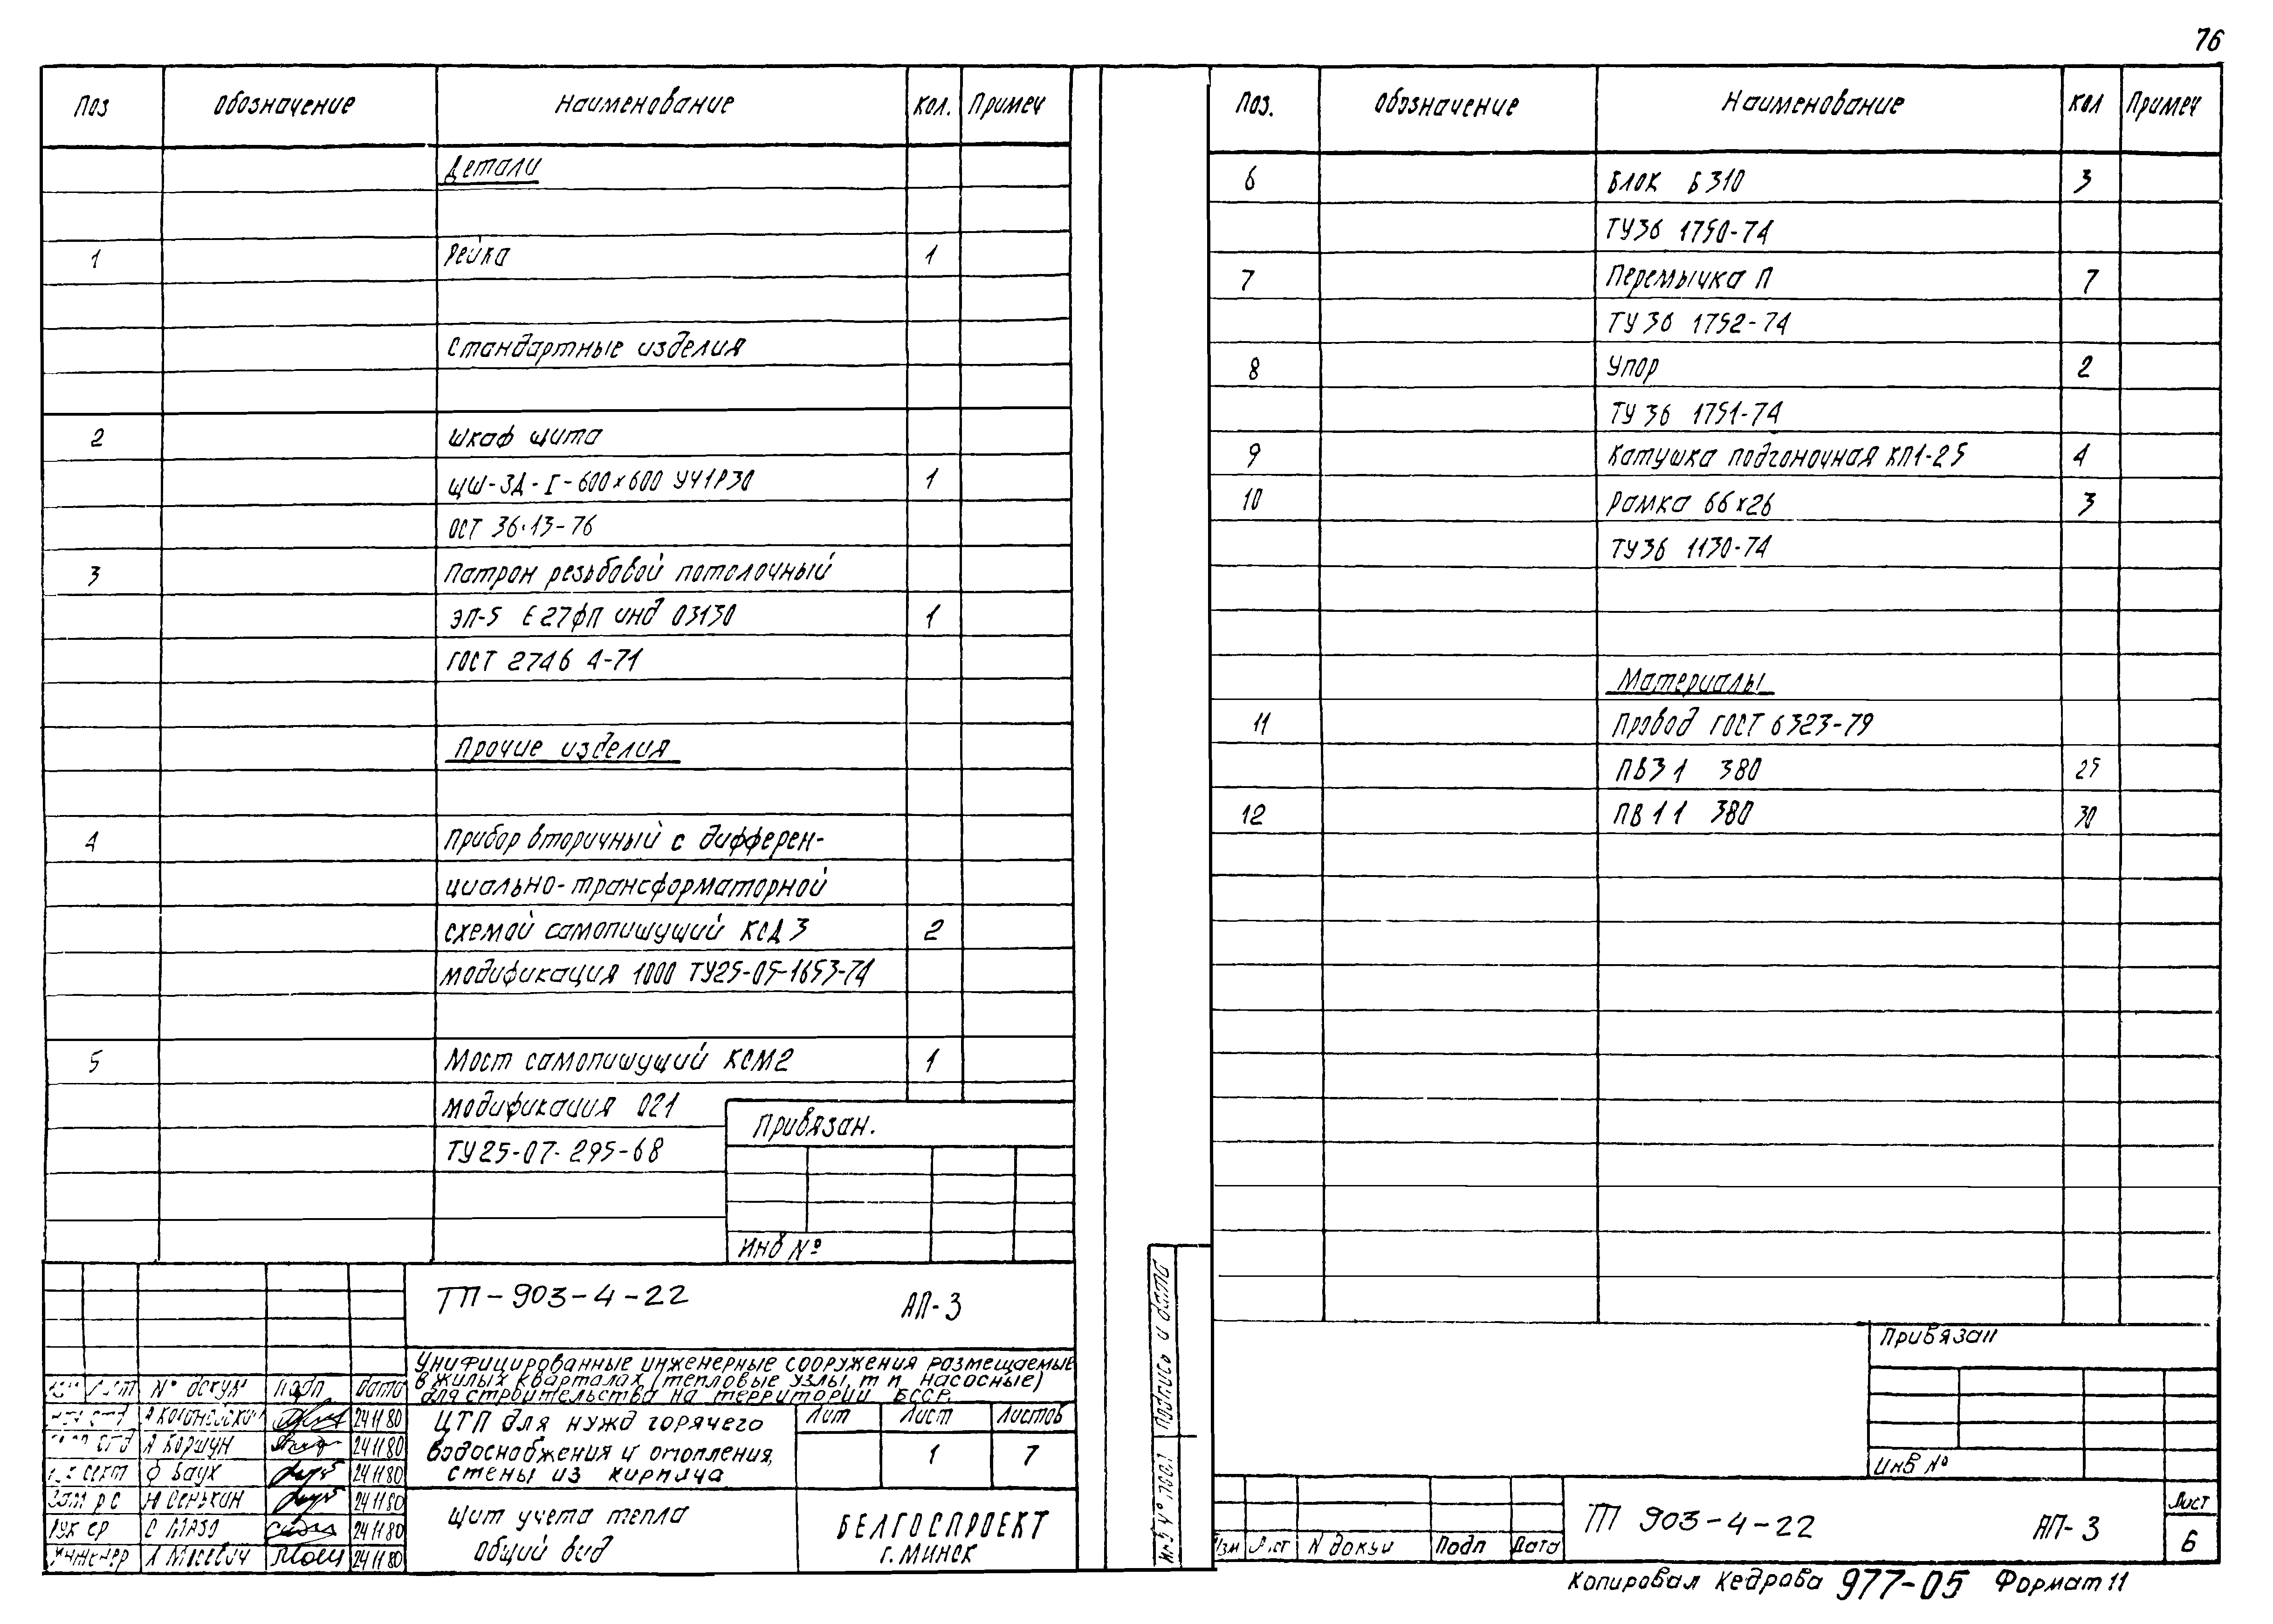 76
Поз Обозначение Наименование Кол. Примеч
Детали
1 Рейка 1
Стандартные изделия
2 Шкаф щита
ЩШ-ЗД-I-600х600 УЧ1Р30 1
ОСТ 36.13-76
3 Патрон резьбовой потолочный
ЭП-5 Е27ФП инд 03130 1
ГОСТ 2746 4-71
Прочие изделия
4 Прибор вторичный с дифферен-
циально-трансформаторной
схемой самопишущий КСД 3 2
модификация 1000 ТУ25-05-1653-74
5 Мост самопишущий КСМ2 1
модификация 021
ТУ25-07-295-68
Привязан.
Инв №
ТП-903-4-22 АП-3
Унифицированные инженерные сооружения размещаемые
в жилых кварталах (тепловые узлы, тп, насосные)
для строительства на территории БССР.
Лист № докум Подп Дата
24 11 80
А Коршун 24 11 80
сект Ф Баух 24 11 80
Ю Сенькин 24 11 80
24 11 80
Инженер 24 11 80
ЦТП для нужд горячего
водоснабжения и отопления,
стены из кирпича
Лит Лист Листов
1 7
Щит учета тепла
Общий вид
БЕЛГОСПРОЕКТ
г. МИНСК
Поз. Обозначение Наименование Кол Примеч
6 Блок Б310 3
ТУ36 1750-74
7 Перемычка П 7
ТУ 36 1752-74
8 Упор 2
ТУ 36 1751-74
9 Катушка подгоночная КП1-25 4
10 Рамка 66х26 3
ТУ36 1130-74
Материалы
11 Провод ГОСТ 6323-79
ПВ3 1 380 25
12 ПВ 1 1 380 30
Подпись и дата
Привязан
Инв №
Изм Лист N докум Подп Дата
ТП 903-4-22 АП-3
Лист
6
Копировал Кедрова 977-05 Формат 11